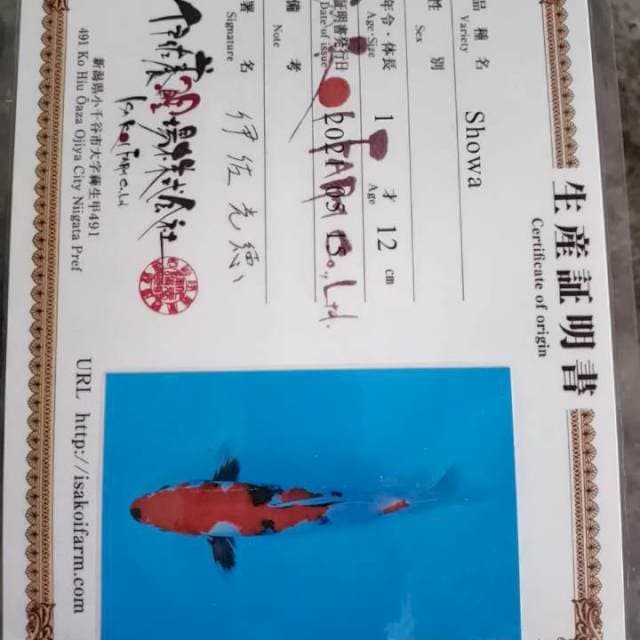 生産証明書
Certificate of origin
品種名
Variety
Showa
性別
Sex
年令・体長
Age・Size
1才
Age
12cm
証明書発行日
Date of issue
2021
Co., Ltd.
備考
Note
署名
Signature
伊佐光徳
新潟県小千谷市大字薭生甲491
491 Ko Hiu Ōaza Ojiya City Niigata Pref
URL http://isakoifarm.com